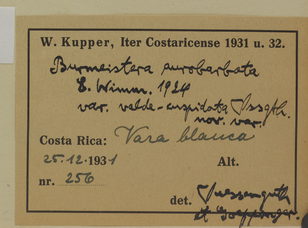 W. Kupper, Iter Costaricense 1931 u. 32.
Burmeistera aurobarbata
E. Wimm. 1924
var. valde-cuspidata Sussgth.
nov. var.
Costa Rica: Vara blanca
25.12.1931 Alt.
nr. 256
det. Suessenguth
et Goeppinger.